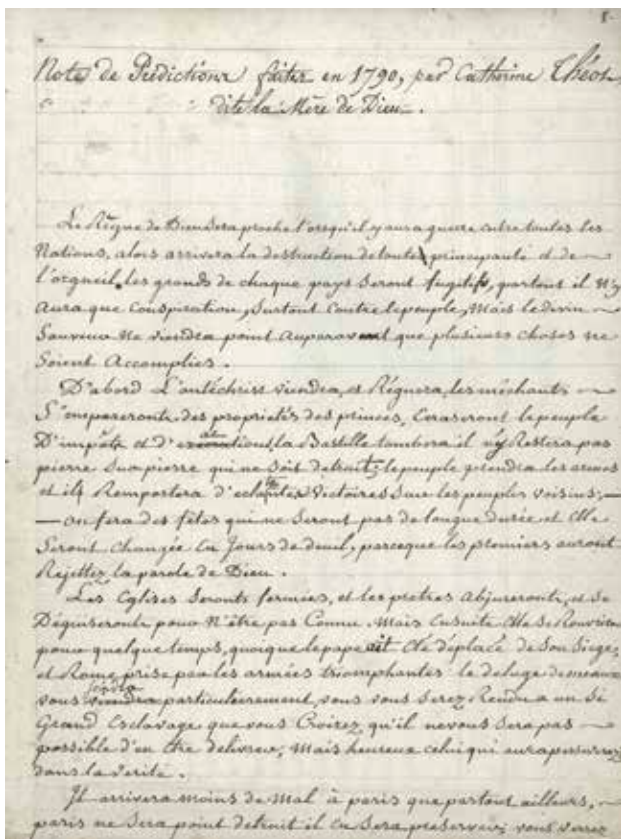 1.
Note de Prédictions faites en 1790, par Catherine Théos,
dite la Mère de Dieu.
Le Règne de Dieu sera proche lorsqu'il y aura guerre entre toutes les
Nations, alors arrivera la destruction de toute principauté et de
l'orgueil, les grands de chaque pays seront fugitifs, partout il n'y
aura que Conspiration, Surtout Contre le peuple, Mais le divin
Sauveur ne viendra point auparavant que plusieurs choses ne
Soient Accomplies.
D'abord L'antéchrist viendra, et Régnera, les méchants
S'empareront des propriétés des princes, Ecraseront le peuple
D'impôts et d' la Bastille tombera il n'y Restera pas
pierre Sur pierre qui ne Soit detruit; le peuple prendra les armes
et ils Remportera d'eclatantes Victoires Sur les peuples voisins;
on fera des fêtes qui ne Seront pas de longue durée et Elle
Seront changée en Jours de deuil, parceque les premiers auront
Rejettez la parole de Dieu.
Les Eglises Seronts fermées, et les pretres abjureront, et se
Déguiseront pour N'être pas Connu. Mais Ensuite Elle se Rouvrira
pour quelque temps, quoique le pape ait Eté déplacé de Son Siege,
et Rome prise par les armées triomphantes le deluge de meaux
vous viendra particulierement, vous vous Serez Rendu a un Si
Grand Esclavage que vous Croirez qu'il ne vous Sera pas
possible d'en être delivrer, Mais heureux celui qui aura perseverez
dans la Verite.
Il arrivera moins de Mal à paris que partout ailleurs,
paris ne Sera point detruit il en Sera preservé; vous verrez